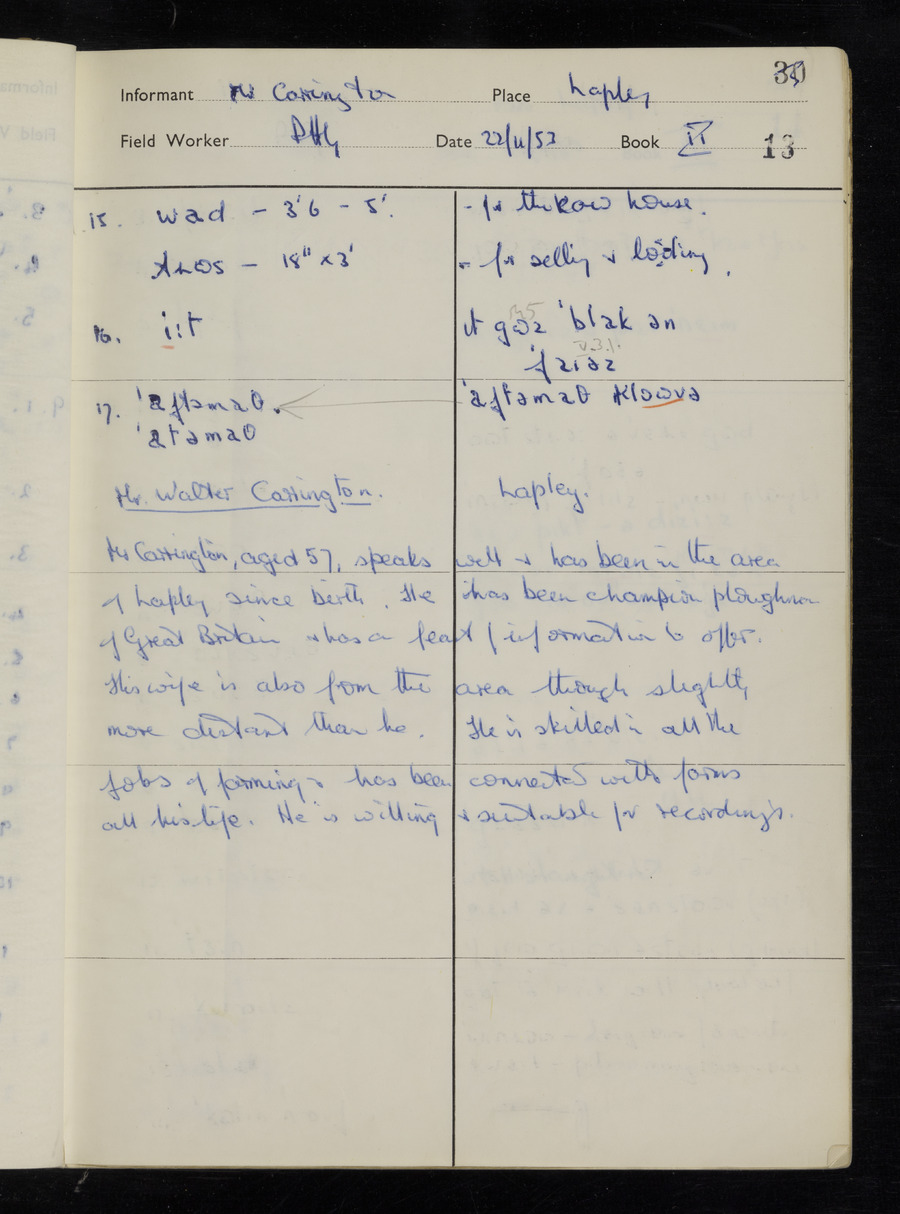 30
Informant Mr Carrington Place Lapley
Field Worker DHG Date 22/11/53 Book II 13
15. wad – 3'6 – 5'. – for the kow house.
– 18" x 3' – for selling & loding.
16. i:t it 'blak an
V.3.1.
17. 'aftəmaθ. 'aftəmaθ
'atəmaθ
Mr. Walter Carrington. Lapley.
Mr Carrington, aged 57, speaks well & has been in the area
of Lapley since birth. He has been champion ploughman
of Great Britain & has a feast of information to offer.
His wife is also from the area though slightly
more distant than he. He is skilled in all the
jobs of farming & has been connected with farms
all his life. He is willing & suitable for recordings.